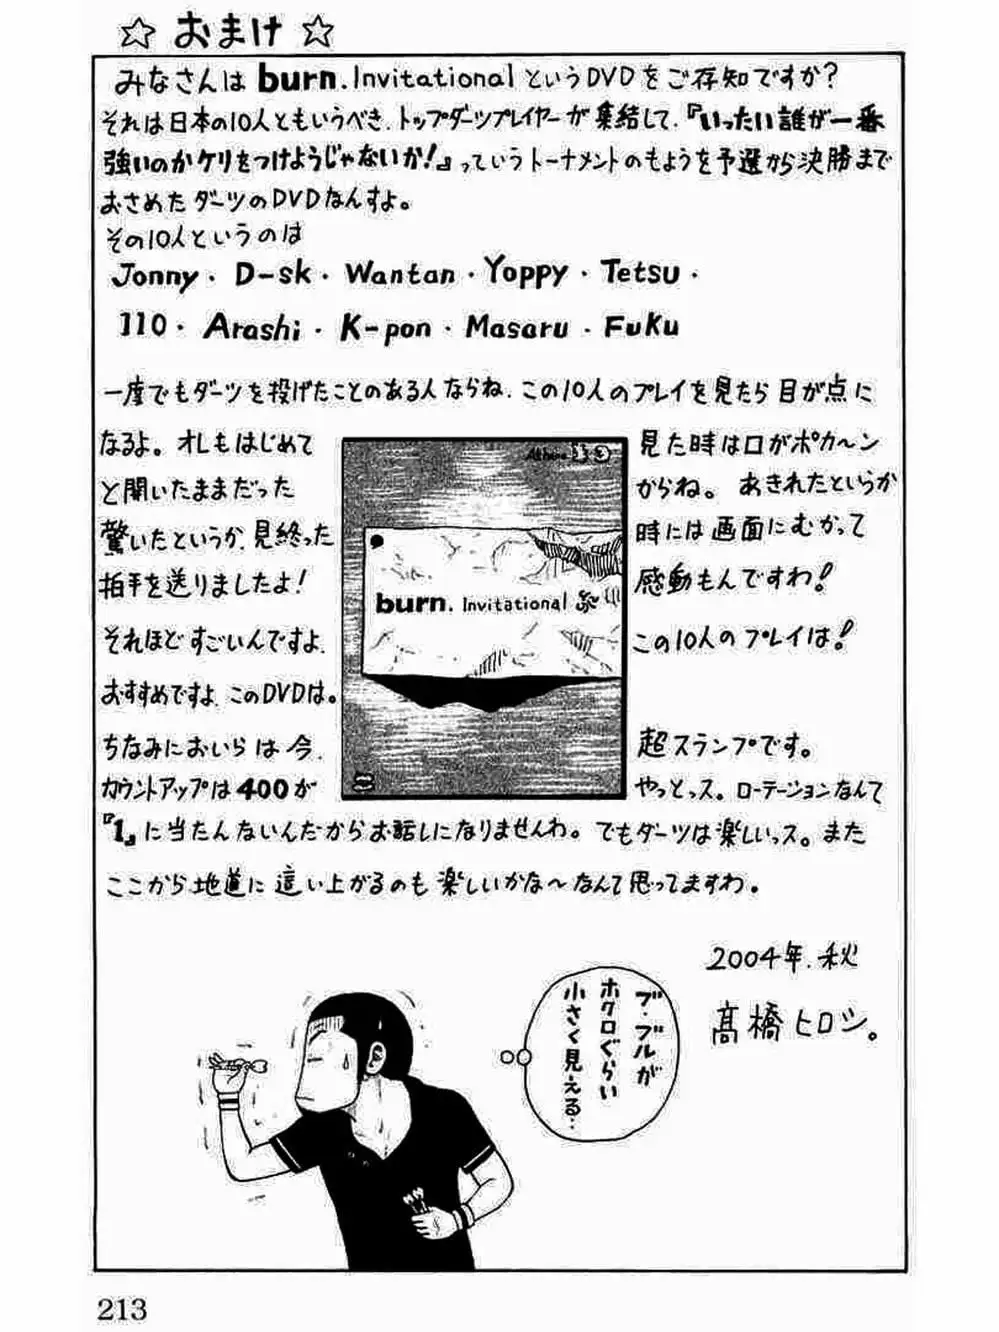 ☆ おまけ ☆
みなさんは burn. Invitational というDVDをご存知ですか?
それは日本の10人ともいうべき、トップダーツプレイヤーが集結して、『いったい誰が一番
強いのかケリをつけようじゃないか!』っていうトーナメントのもようを予選から決勝まで
おさめたダーツのDVDなんすよ。
その10人というのは
Jonny・D-sk・Wantan・Yoppy・Tetsu・
110・Arashi・K-pon・Masaru・Fuku
一度でもダーツを投げたことのある人ならね、この10人のプレイを見たら目が点に
なるよ。オレもはじめて見た時は口がポカ〜ン
と開いたままだったからね。あきれたというか
驚いたというか、見終った時には画面にむかって
拍手を送りましたよ!感動もんですわ!
それほどすごいんですよ、この10人のプレイは!
おすすめですよ、このDVDは。
burn. Invitational
ちなみにおいらは今、超スランプです。
カウントアップは400がやっとっス。ローテーションなんて
『1』に当たんないんだからお話しになりませんわ。でもダーツは楽しいっス。また
ここから地道に這い上がるのも楽しいかな〜なんて思ってますわ。
2004年、秋
髙橋ヒロシ。
ブ・ブルが
ホクロぐらい
小さく見える…
213